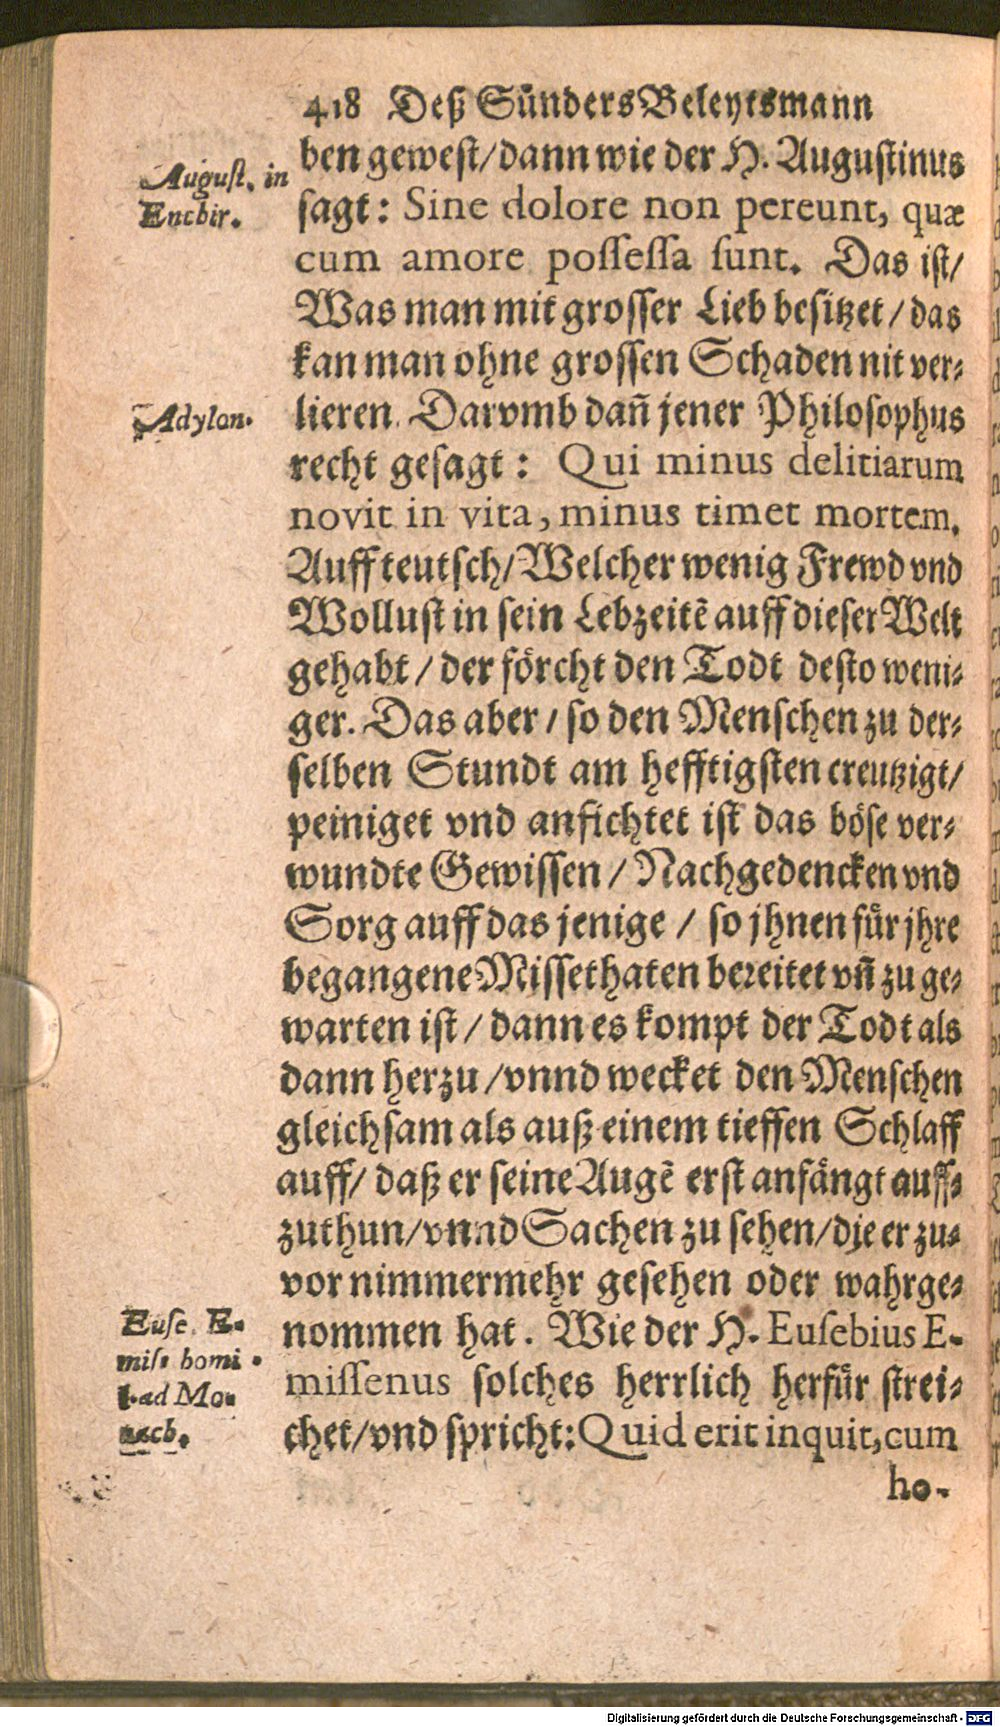 418 Deß Sünders Beleytsmann
August. in
Enchir.
ben gewest/dann wie der H. Augustinus
sagt: Sine dolore non pereunt, quæ
cum amore possessa sunt. Das ist/
Was man mit grosser Lieb besitzet/das
kan man ohne grossen Schaden nit ver-
Adylon.
lieren. Darvmb dañ jener Philosophus
recht gesagt: Qui minus delitiarum
novit in vita, minus timet mortem.
Auff teutsch/Welcher wenig Frewd vnd
Wollust in sein Lebzeitẽ auff dieser Welt
gehabt/der förcht den Todt desto weni-
ger. Das aber/so den Menschen zu der-
selben Stundt am hefftigsten creutzigt/
peiniget vnd anfichtet ist das böse ver-
wundte Gewissen/Nachgedencken vnd
Sorg auff das jenige/so jhnen für jhre
begangene Missethaten bereitet vñ zu ge-
warten ist/dann es kompt der Todt als
dann herzu/vnnd wecket den Menschen
gleichsam als auß einem tieffen Schlaff
auff/daß er seine Augẽ erst anfängt auff-
zuthun/vnnd Sachen zu sehen/die er zu-
vor nimmermehr gesehen oder wahrge-
Euse. E-
mis. homi.
ad Mo-
nach.
nommen hat. Wie der H. Eusebius E-
missenus solches herrlich herfür strei-
chet/vnd spricht: Quid erit inquit, cum
ho-
Digitalisierung gefördert durch die Deutsche Forschungsgemeinschaft - DFG